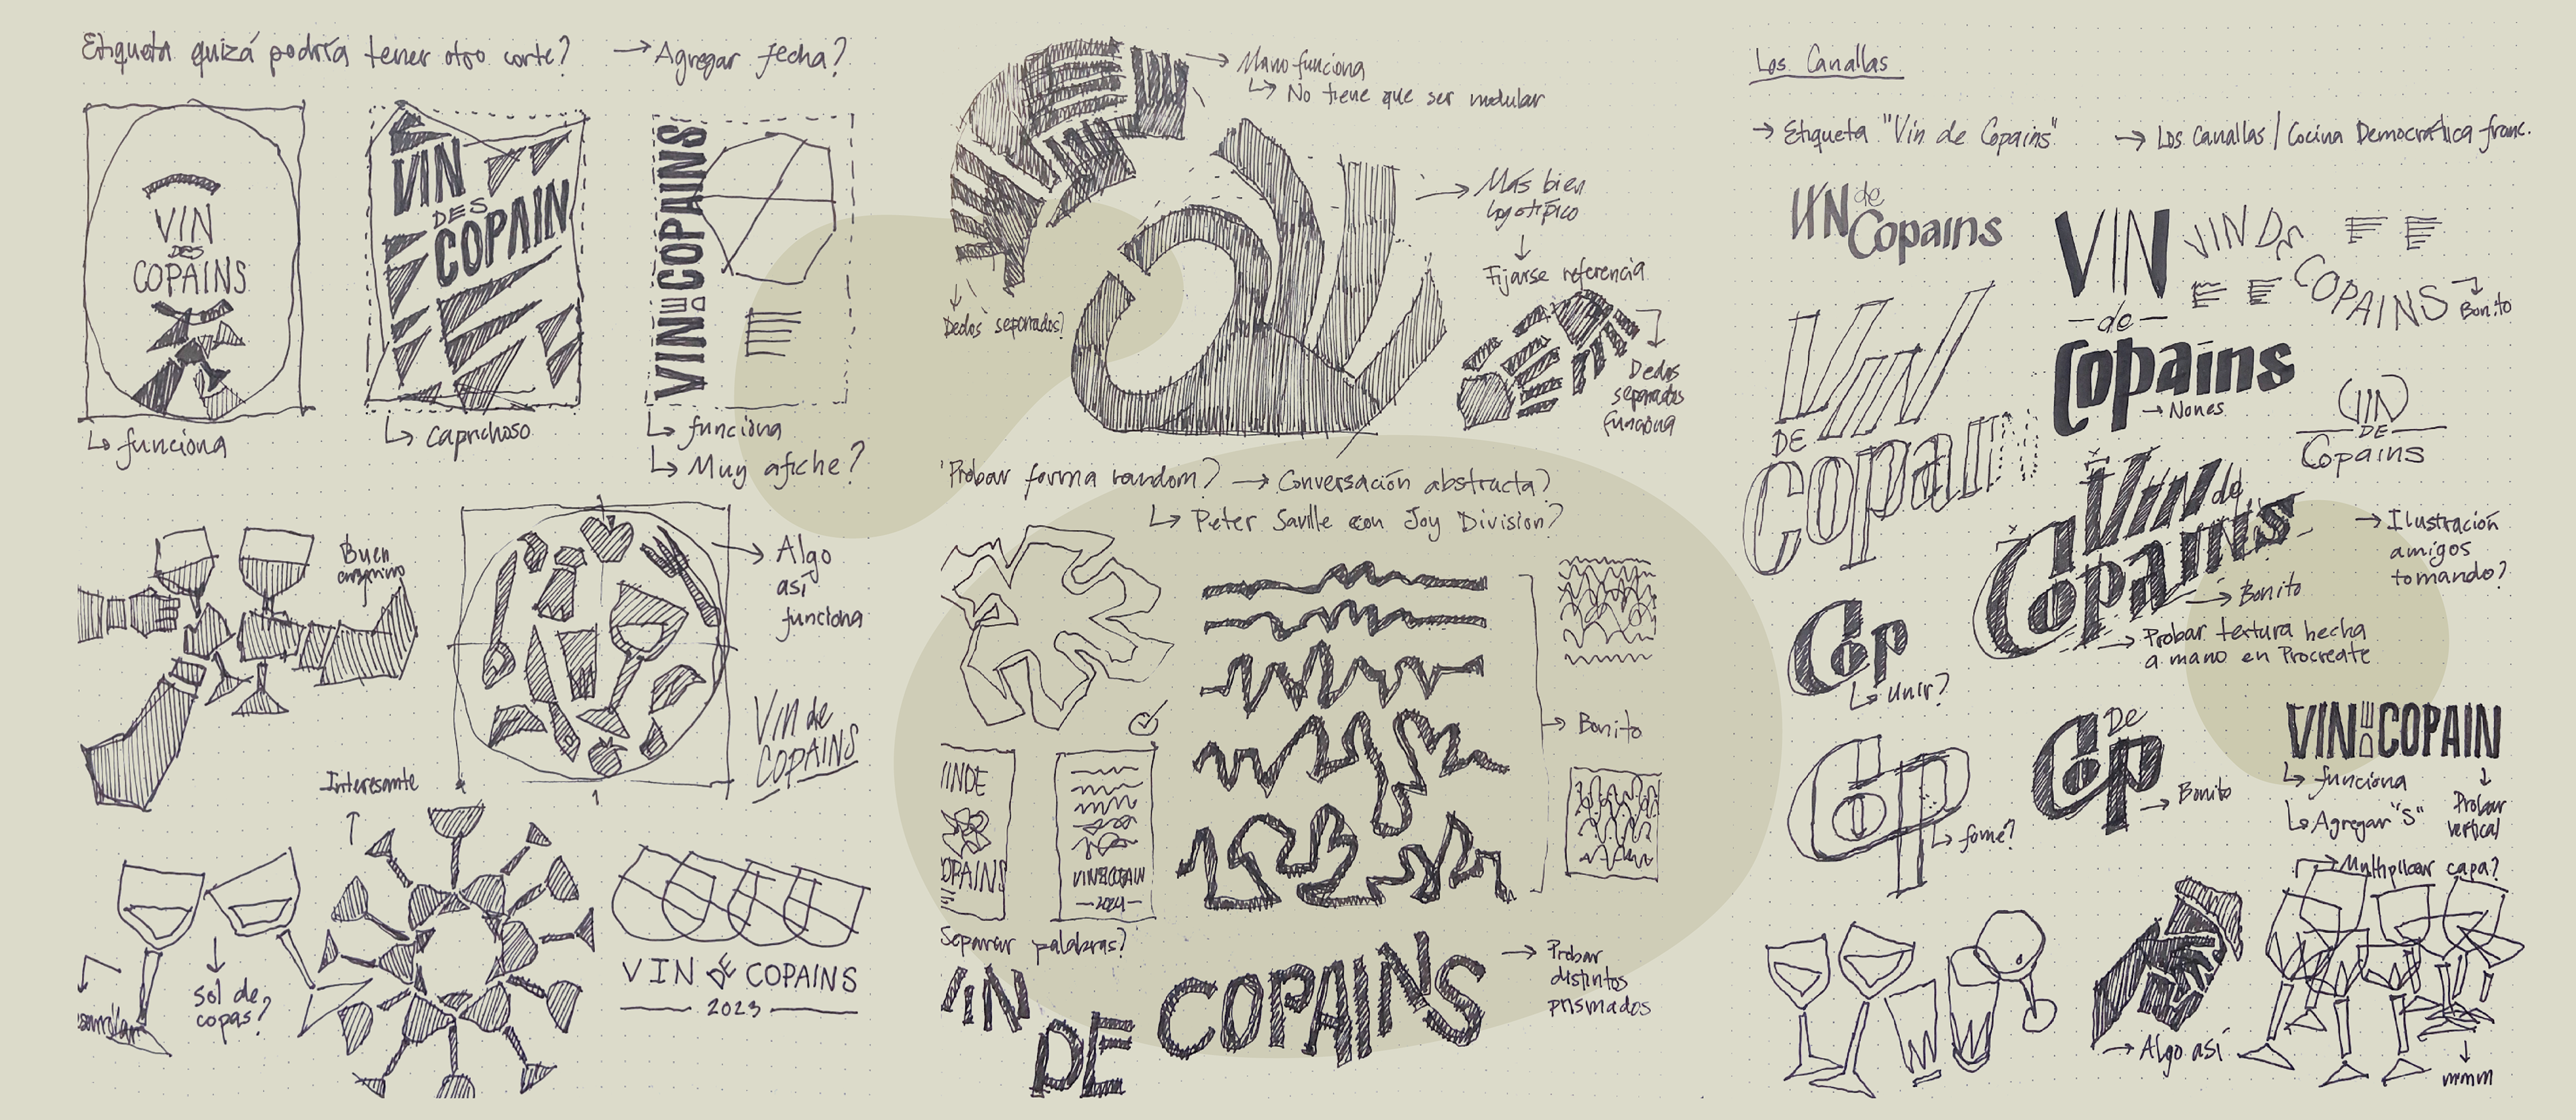 Etiqueta quizá podría tener otro corte?
→ Agregar fecha?
VIN
DES
COPAINS
↳ funciona
VIN
DES
COPAIN
↳ Caprichoso
VIN DE COPAINS
↳ funciona
↳ Muy afiche?
Buen
→ Algo
así
funciona
Vin de
COPAINS
Interesante
Sol de
copas?
VIN DE COPAINS
2023
→ Mano funciona
↳ No tiene que ser modular
→ Más bien
logotípico
Fijarse referencia
Dedos separados?
Dedos
separados
funciona
Probar forma random? → Conversación abstracta?
↳ Peter Saville con Joy Division?
→ Bonito
INDE
OPAINS
VINDECOPAIN
—2024—
Separar palabras?
VIN
DE
COPAINS
→ Probar
distintos
prismados
Los Canallas
→ Etiqueta "Vin de Copains"
→ Los Canallas / Cocina Democrática franc.
VIN de
Copains
VIN
—de—
Copains
→ Nones
VIN DES
COPAINS
Bonito
VIN
DE
COPAIN
VIN
DE
Copains
Vin de
Copains
→ Bonito
→ Probar textura hecha
a mano en Procreate
→ Ilustración
amigos
tomando?
Cop
↳ Unir?
Cop
↳ fome?
DE
Cop
→ Bonito
VIN DE COPAIN
↳ funciona
↳ Agregar "S"
Probar
vertical
→ Multiplicar capa?
→ Algo así
mmm